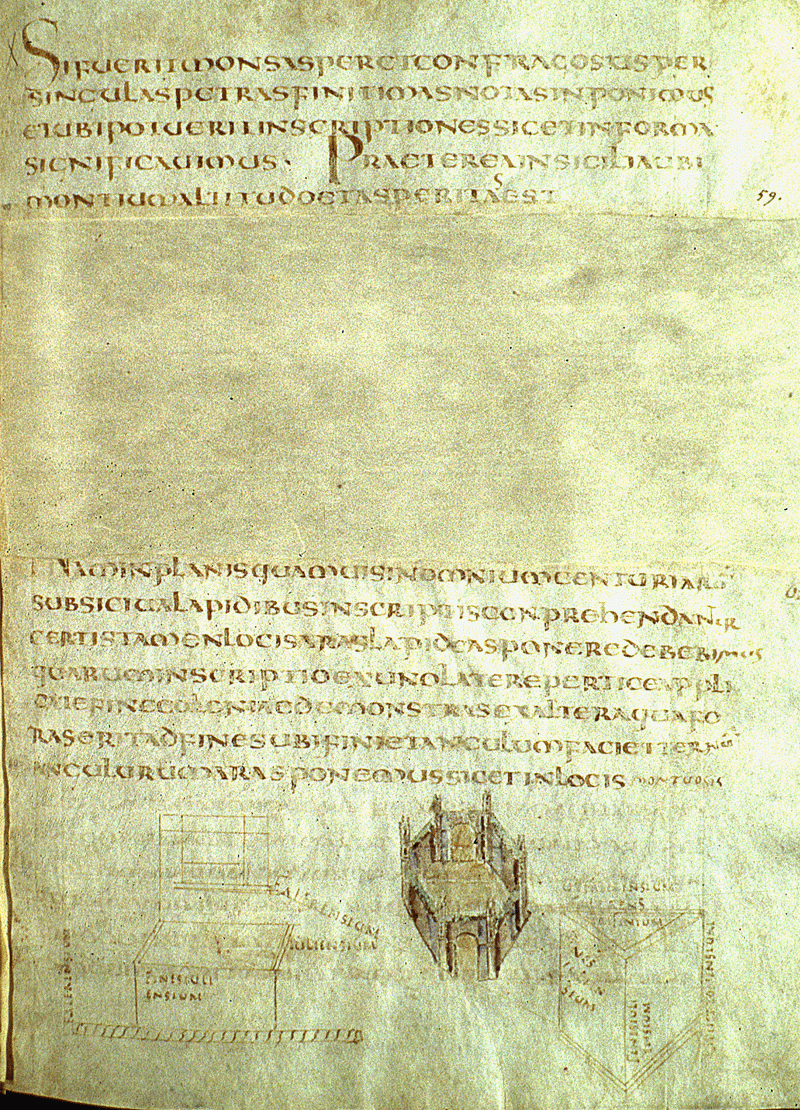 SIFUERITMONSASPERETCONFRAGOSUSPER
SINGULASPETRASFINITIMASNOTASINPONIMUS
ETUBIPOTUERITINSCRIPTIONESSICETINFORMA
SIGNIFICAUIMUS· PRAETEREAINSICILIAUBI
MONTIUMALTITUDOETASPERITASEST
59.
NAMINPLANISQUAMUISINOMNIUMCENTURIARU
SUBSICIUALAPIDIBUSINSCRIPTIS CONPREHENDANTUR
CERTISTAMENLOCISARASLAPIDEASPONEREDEBEBIMUS
QUARUMINSCRIPTIOEXUNOLATEREPERTICEAPPLI
FINECOLONIAEDEMONSTRASEXALTERAQUAFO
RASERITADFINESUBIFINIETANGULUMFACIET
ANGULORUMARASPONEMUSSICETINLOCIS MONTUOSIS
FINISIULI
ENSIUM
IULIENSIUM
FINISIULI
ENSIUM